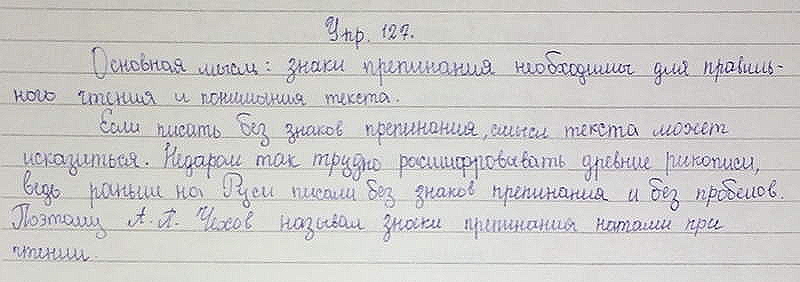 Упр. 127.
Основная мысль: знаки препинания необходимы для правиль-
ного чтения и понимания текста.
Если писать без знаков препинания, смысл текста может
исказиться. Недаром так трудно расшифровывать древние рукописи,
ведь раньше на Руси писали без знаков препинания и без пробелов.
Поэтому А. П. Чехов называл знаки препинания нотами при
чтении.